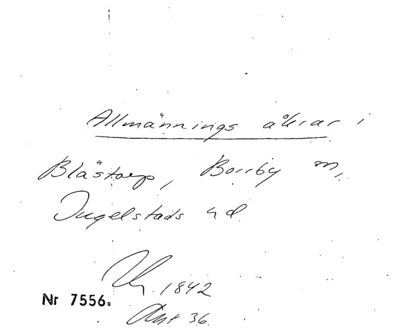 Allmännings åkrar i
Blästorp, Borrby m,
Ingelstads hd
1842
Nr 7556.
Akt 36.